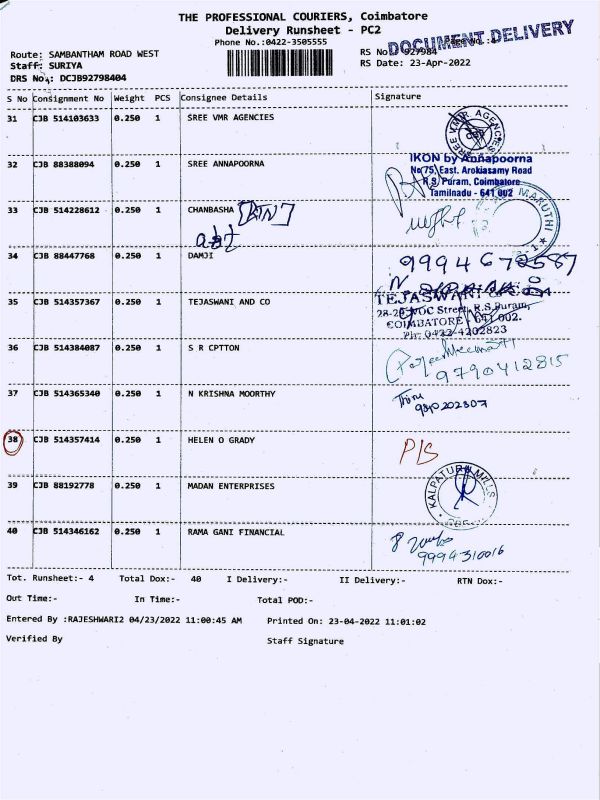 THE PROFESSIONAL COURIERS, Coimbatore
Delivery Runsheet - PC2
Phone No.:0422-3505555
DOCUMENT DELIVERY
Route: SAMBANTHAM ROAD WEST
RS No. 927984
Staff: SURIYA
RS Date: 23-Apr-2022
DRS No.: DCJB92798404
S No Consignment No Weight PCS Consignee Details Signature
31 CJB 514103633 0.250 1 SREE VMR AGENCIES
SREE V.M.R. AGENCIES
CBE
32 CJB 88388094 0.250 1 SREE ANNAPOORNA
IKON by Annapoorna
No 75, East. Arokiasamy Road
R.S. Puram, Coimbatore
Tamilnadu - 641 002
33 CJB 514228612 0.250 1 CHANBASHA
MARUTHI
34 CJB 88447768 0.250 1 DAMJI
35 CJB 514357367 0.250 1 TEJASWANI AND CO
TEJASWANI & CO
28-29 VOC Street, R.S.Puram,
COIMBATORE - 641 002.
Ph: 0422-4202823
36 CJB 514384087 0.250 1 S R CPTTON
9790412815
37 CJB 514365340 0.250 1 N KRISHNA MOORTHY
38 CJB 514357414 0.250 1 HELEN O GRADY
39 CJB 88192778 0.250 1 MADAN ENTERPRISES
KALPATURU MILLS
40 CJB 514346162 0.250 1 RAMA GANI FINANCIAL
9994310016
Tot. Runsheet:- 4 Total Dox:- 40 I Delivery:- II Delivery:- RTN Dox:-
Out Time:- In Time:- Total POD:-
Entered By :RAJESHWARI2 04/23/2022 11:00:45 AM Printed On: 23-04-2022 11:01:02
Verified By Staff Signature